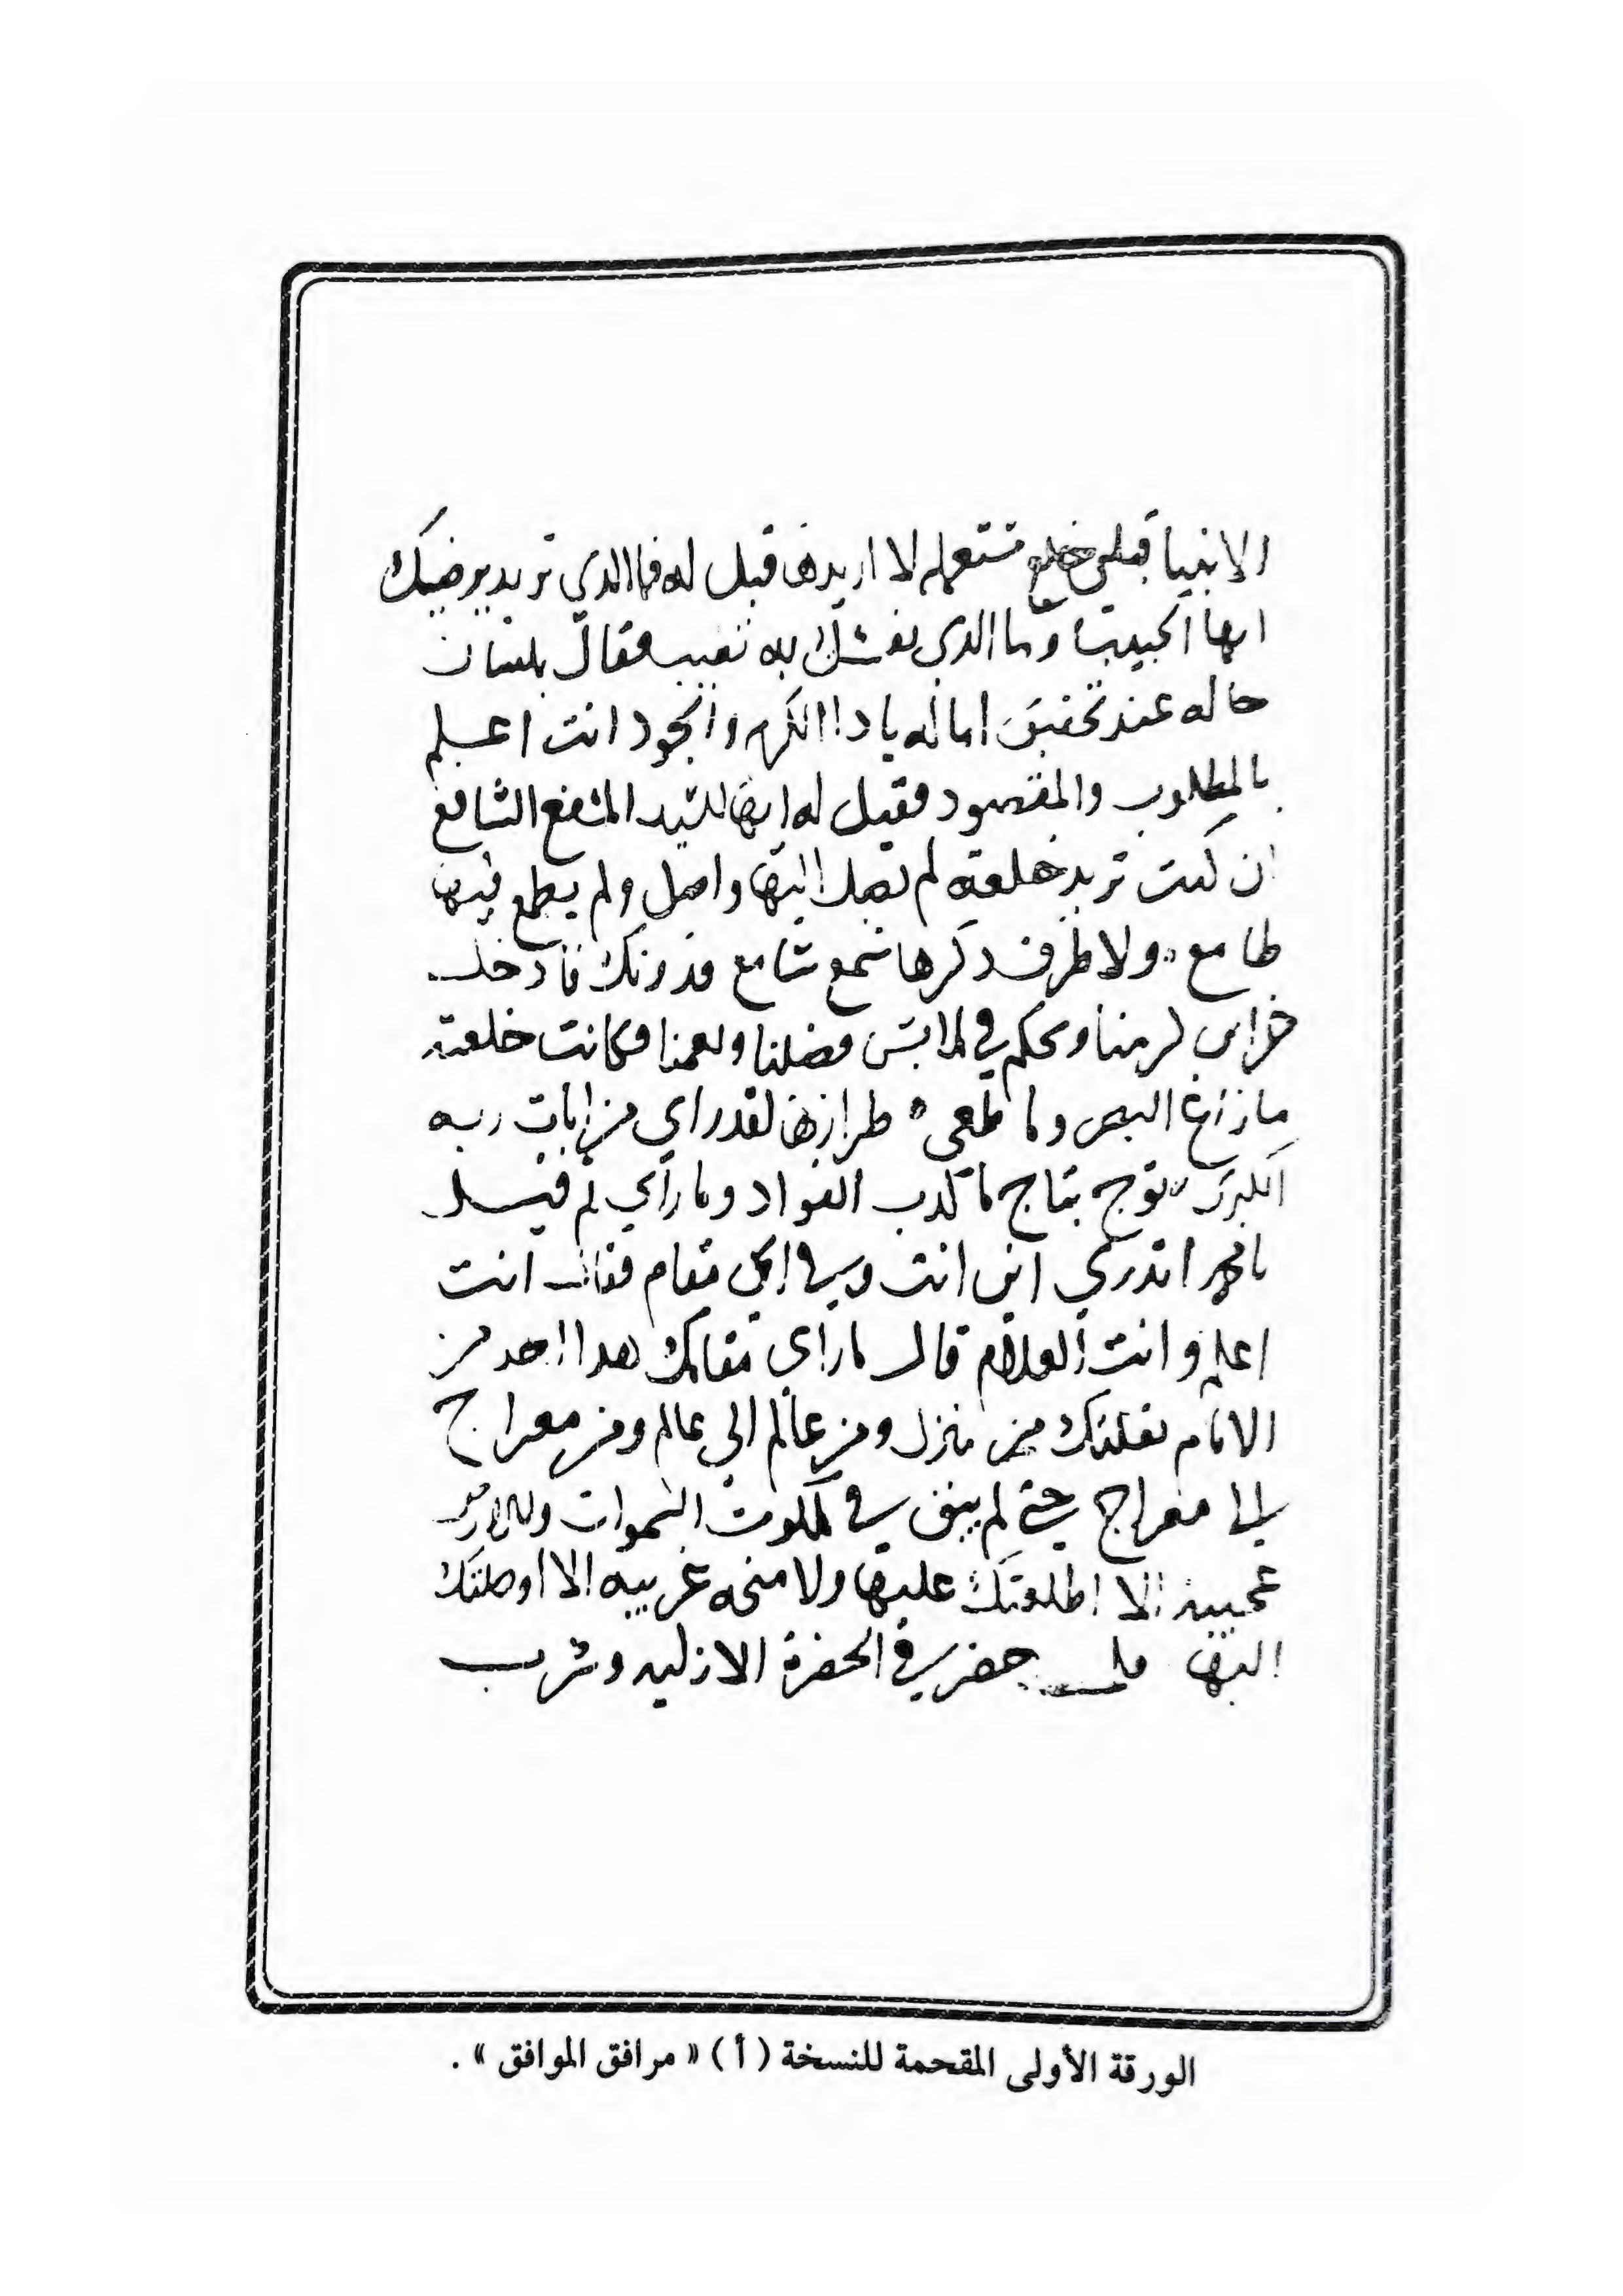 الانبيا قبلي خلع مستعمله لا اريدها قيل له فما الذي تريد يرضيك
ايها الحبيب وما الذي نفسك به تعيب فقال بلسان
حاله عند تحقيق اماله يا ذا الكرم والجود انت اعلم
بالمطلوب والمقصود فقيل له ايها السيد المشفع الشافع
ان كنت تريد خلعة لم يصل اليها واصل ولم يطمع فيها
طامع ولا طرف ذكرها سمع سامع فدونك فادخل
خزاين كرمنا وتحكم في ملابس فضلنا ونعمنا فكانت خلعته
ما زاغ البصر وما طغى طرازها لقد راي من ايات ربه
الكبرى توج بتاج ما كذب الفواد ما راي ثم قيل
يا محمد اتدري اين انت وفي اي مقام فقال انت
اعلم وانت العلام قال ما راى مقامك هذا احد من
الانام نقلتك من منزل ومن عالم الى عالم ومن معراج
الى معراج حتى لم يبق في ملكوت السموات والارض
عجيبة الا اطلعتك عليها ولا منحه غريبه الا اوصلتك
اليها فلما حضر في الحضرة الازليه وشرب
الورقة الأولى المقحمة للنسخة ( أ ) « مرافق الموافق » .